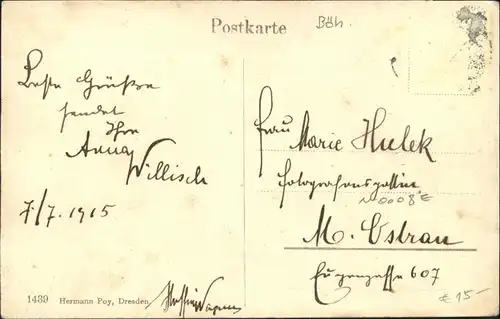 Postkarte
Böh.
Beste Grüße
sendet
Ihre
Anna
Willisch
7/7. 1915
Frau Marie Hulek
Fotografensgattin
M. Ostrau
Eugengasse 607
€ 15-
1439 Hermann Poy, Dresden.